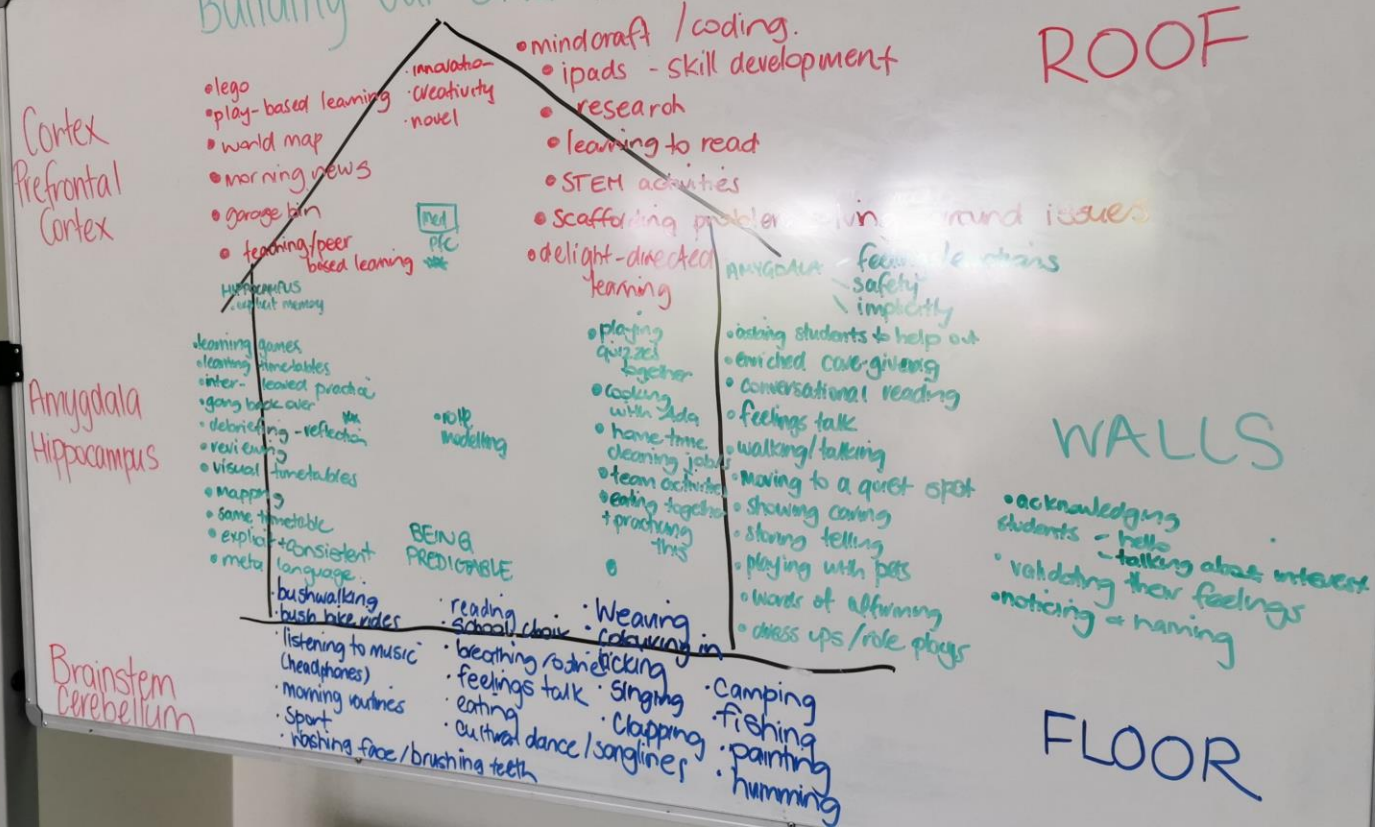 Building our
ROOF
Cortex
Prefrontal
Cortex
• lego
• play-based learning
• world map
• morning news
• garage bin
• teaching/peer
based learning
• innovation
• creativity
• novel
med
pfc
• mindcraft / coding.
• ipads - skill development
• research
• learning to read
• STEM activities
• scaffolding problem solving around issues
• delight-directed
learning
Amygdala
Hippocampus
HIPPOCAMPUS
- explicit memory
• learning games
• learning timetables
• inter-leaved practice
• going back over
• debriefing - reflection
• reviewing
• visual timetables
• mapping
• same timetable
• explicit + consistent
• meta language.
• role
modelling
BEING
PREDICTABLE
• playing
quizzes
together
• cooking
with Ada
• home time
cleaning jobs
• team activities
• eating together
+ practising
this
AMYGDALA
- feelings/emotions
- safety
\ implicitly
• asking students to help out
• enriched care-giving
• conversational reading
• feelings talk
• walking/talking
• moving to a quiet spot
• showing caring
• storing telling
• playing with pets
• words of affirming
• dress ups/role plays
WALLS
• acknowledging
students - hello
- talking about interest
• validating their feelings
• noticing & naming
Brainstem
Cerebellum
• bushwalking
• bush bike rides
• listening to music
(headphones)
• morning routines
• sport
• washing face/brushing teeth
• reading
• school choir
• breathing routines
• feelings talk
• eating
• cultural dance/songlines
• Weaving
• colouring in
• kicking
• singing
• clapping
• camping
• fishing
• painting
• humming
FLOOR